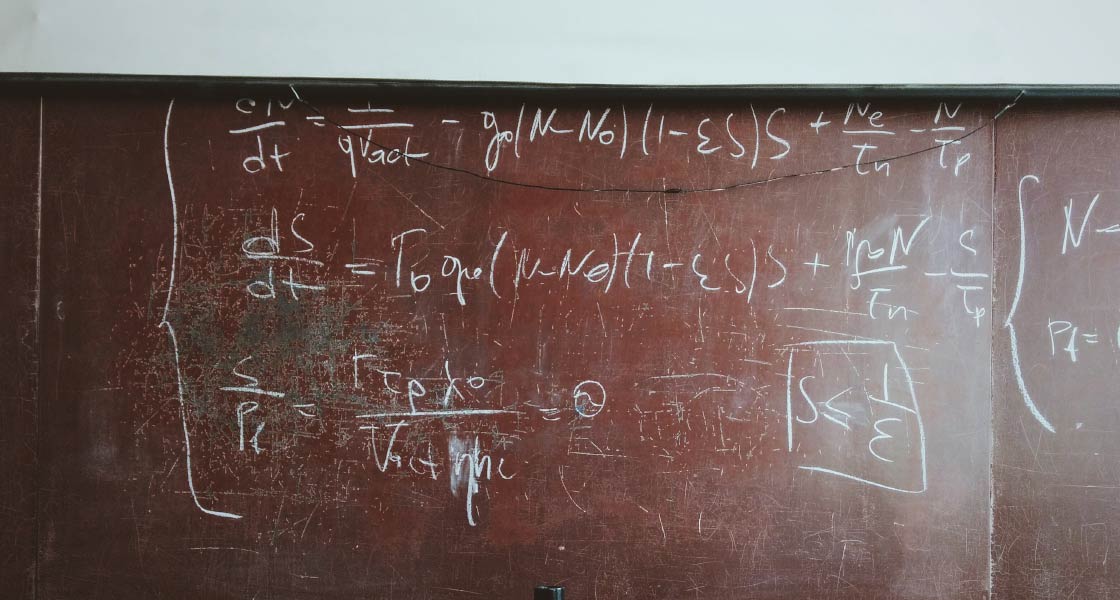 dN/dt = I/qVact - g₀(N-N₀)(1-εS)S + Ne/τn - N/τp
dS/dt = Γ₀g₀(N-N₀)(1-εS)S + N/τn - S/τp
S/Pf = Γτpλ₀/Vactηhc = ②
S ≤ 1/ε
N =
Pf =